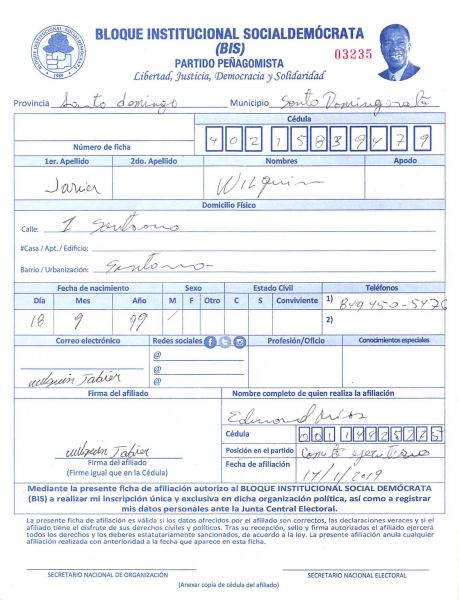 BLOQUE INSTITUCIONAL SOCIALDEMÓCRATA
(BIS)
PARTIDO PEÑAGOMISTA
Libertad, Justicia, Democracia y Solidaridad
03235
BLOQUE INSTITUCIONAL SOCIALDEMOCRATA
Provincia Santo domingo Municipio Santo Domingo
Cédula
Número de ficha 40215839479
1er. Apellido 2do. Apellido Nombres Apodo
Javier Wilquin
Domicilio Físico
Calle: 1
#Casa / Apt. / Edificio:
Barrio / Urbanización:
Fecha de nacimiento Sexo Estado Civil Teléfonos
Día Mes Año M F Otro C S Conviviente 1) 849 450-5476
18 9 99 / 2)
Correo electrónico Redes sociales Profesión/Oficio Conocimientos especiales
@
@
wilquin Jabier @
Firma del afiliado Nombre completo de quien realiza la afiliación
Edmond Ríos
Cédula 00114828375
wilquin Jabier Posición en el partido Comité ejecutivo
Firma del afiliado Fecha de afiliación 17/1/2019
(Firme igual que en la Cédula)
Mediante la presente ficha de afiliación autorizo al BLOQUE INSTITUCIONAL SOCIAL DEMÓCRATA
(BIS) a realizar mi inscripción única y exclusiva en dicha organización política, así como a registrar
mis datos personales ante la Junta Central Electoral.
La presente ficha de afiliación es válida si los datos ofrecidos por el afiliado son correctos, las declaraciones veraces y si el
afiliado tiene el disfrute de sus derechos civiles y políticos. Tras su recepción, sello y firma autorizadas el afiliado ejercerá
todos los derechos y los deberes estatutariamente sancionados, de acuerdo a la ley. La presente afiliación anula cualquier
afiliación realizada con anterioridad a la fecha que aparece en esta ficha.
SECRETARIO NACIONAL DE ORGANIZACIÓN SECRETARIO NACIONAL ELECTORAL
(Anexar copia de cédula del afiliado)